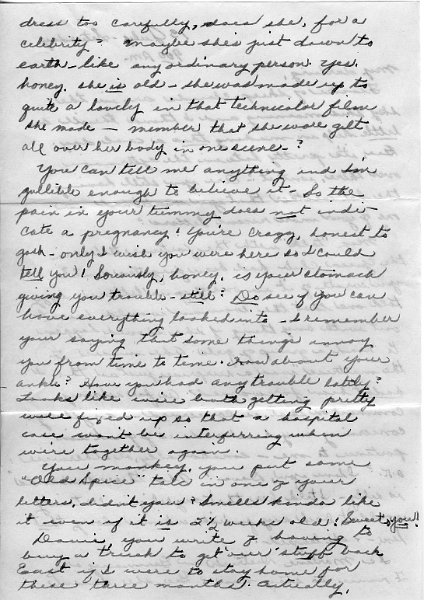 dress too carefully, does she, for a
celebrity? Maybe she's just down to
earth - like any ordinary person. Yes,
honey, she is old - she was made up to
quite a lovely in that technicolor film
she made - member that she wore gilt
all over her body in one scene - ?
You can tell me anything and I'm
gullible enough to believe it - So the
pain in your tummy does not indi-
cate a pregnancy! You're crazy, honest to
gosh - only I wish you were here so I could
tell you! Seriously, honey, is your stomach
giving you trouble - still? Do see if you can
have everything looked into - I remember
your saying that some things annoy
you from time to time. How about your
ankle? Have you had any trouble lately?
Looks like we're both getting pretty
well fixed up so that a hospital
case won't be interferring when
we're together again.
You monkey, you put some
"Old Spice" talc in one of your
letters, didn't you? Smells kinda like
it even if it is 2½ weeks old! Sweet, you!!
Davie, you write of having to
buy a trunk to get our stuff back
East if I were to stay home for
these three months. Actually,